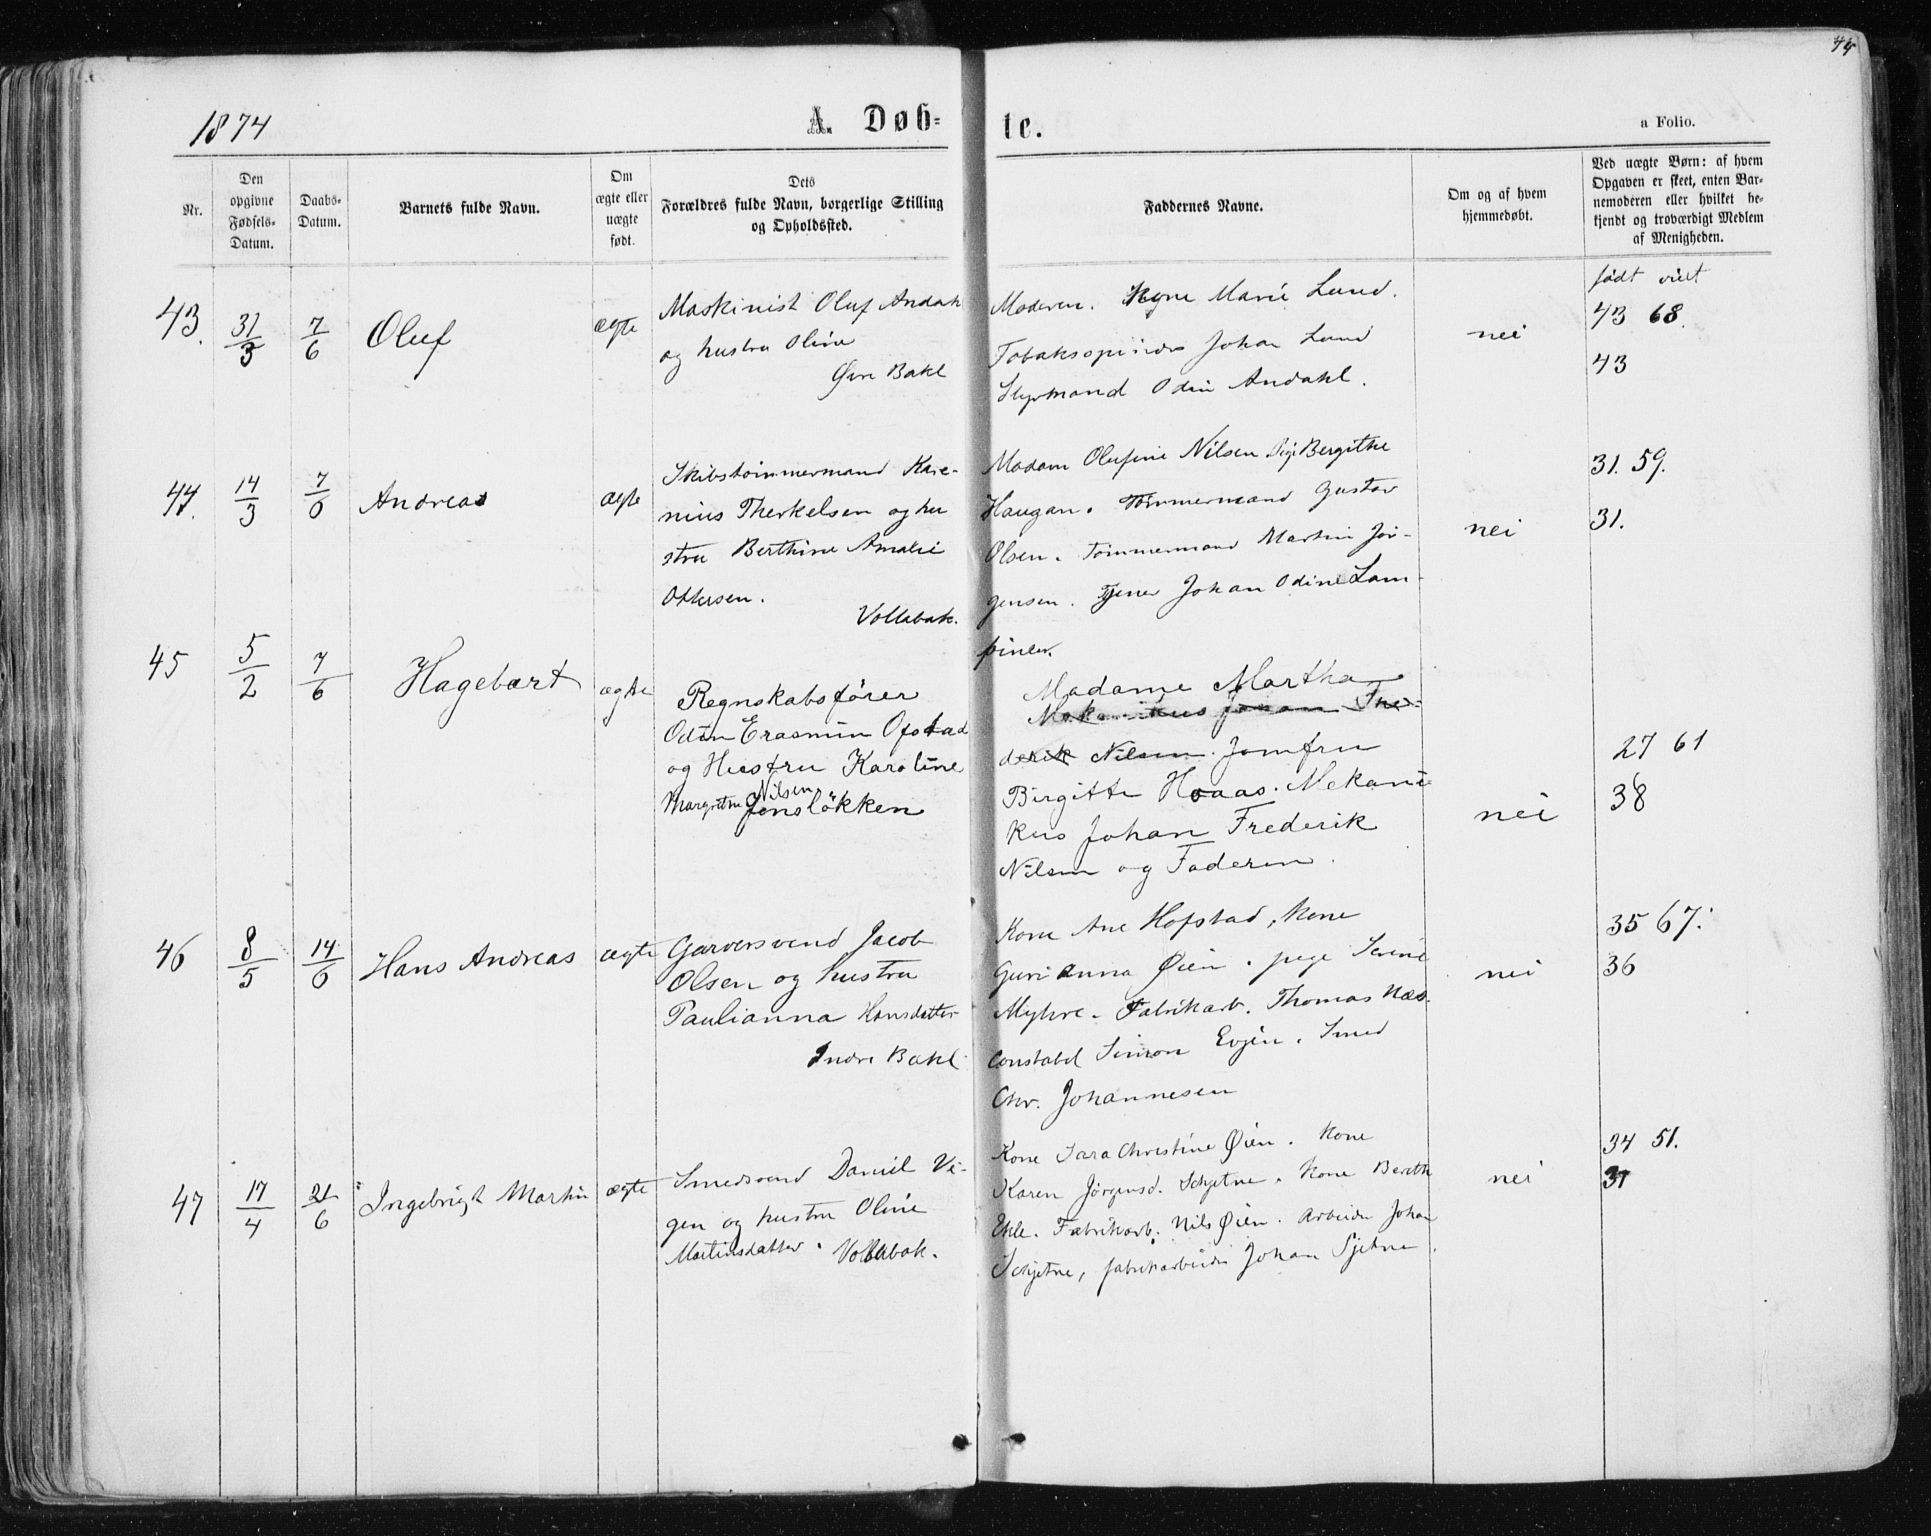 44
1874
A. Døb-
te.
a Folio.
Nr.
Den
opgivne
Fødsels-
Datum.
Daabs-
Datum.
Barnets fulde Navn.
Om
ægte eller
uægte
født.
Dets
Forældres fulde Navn, borgerlige Stilling
og Opholdssted.
Faddernes Navne.
Om og af hvem
hjemmedøbt.
Ved uægte Børn: af hvem
Opgaven er skeet, enten Bar-
nemoderen eller hvilket be-
kjendt og troværdigt Medlem
af Menigheden.
43.
31/3
7/6
Oluf
ægte
Maskinist Oluf Andahl
og hustru Oline
Øvre Bakl
Moderen. Marie Lund.
Tobaksspinder Johan Lund
Styrmand Odin Andahl.
nei
født viet
43 68.
43
44.
14/3
7/6
Andreas
ægte
Skibstømmermand Kare-
nius Therkelsen og hu
stru Berthine Amalie
Ottersen.
Vollabak.
Madam Olufine Nilsen Pige Bergithe
Haugan. Tømmermand Gustav
Olsen. Tømmermand Martin Jør-
gensen. Tjener Johan Odine Lam-
pinen.
nei
31. 59.
31.
45
5/2
7/6
Hagebart
ægte
Regnskabsfører
Odin Erasmus Ofstad
og Hustru Karoline
Margrethe Nilsen
Jensløkken
Madame Martha
Mekanikus Johan Fre-
derik Nilsen. Jomfru
Birgitte Haas. Mekani-
kus Johan Frederik
Nilsen og Faderen.
nei
27 61
38
46
8/5
14/6
Hans Andreas
ægte
Garversvend Jacob
Olsen og hustru
Paulianna Hansdatter
Indre Bakl.
Kone Ane Hofstad, Kone
Gurianna Øien. pige Serine
Myhre. Fabrikarb. Thomas Næs.
Constabel Simon Evjen. Smed
Chr. Johannesen
nei
35 67.
36
47
17/4
21/6
Ingebrigt Martin
ægte
Smedsvend Daniel Vi-
gen og hustru Oline
Martinsdatter. Vollabak.
Kone Sara Christine Øien. Kone
Karen Jørgensd. Schjetne. Kone Bereth
Ekle. Fabrikarb. Nils Øien. Arbeider Johan
Schjetne, fabrikarbeider Johan Sjetne.
nei
34 51.
37